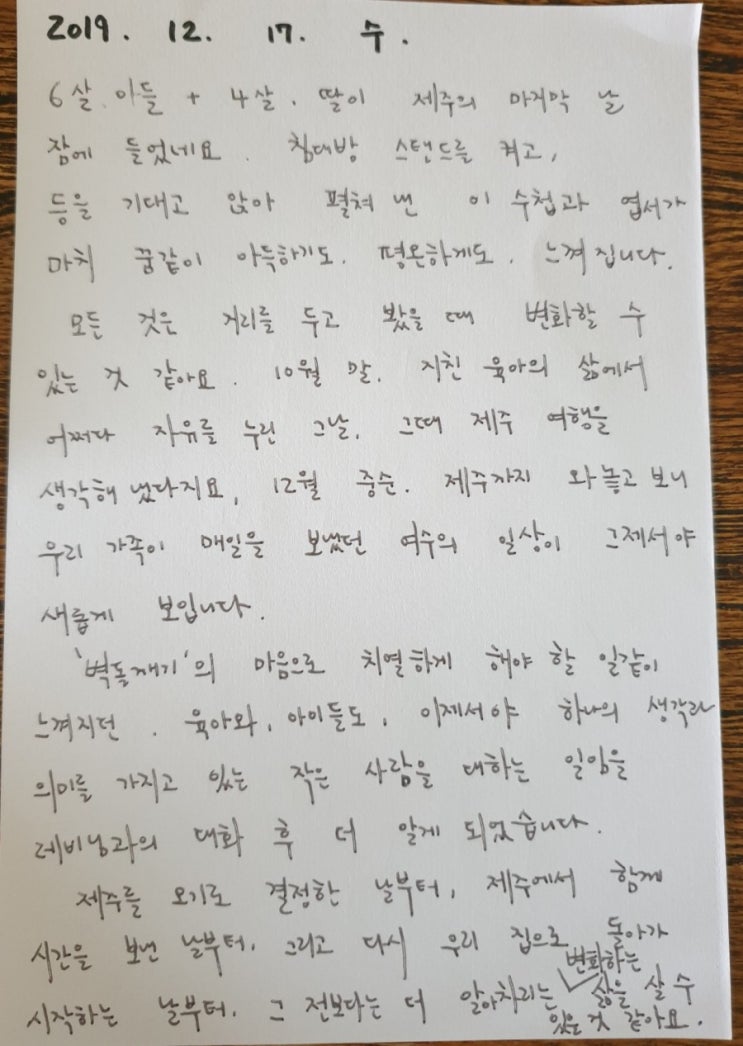 2019. 12. 17. 수.
6살 아들 + 4살. 딸이 제주의 마지막 날
잠에 들었네요. 침대방 스탠드를 켜고,
등을 기대고 앉아 펼쳐 낸 이 수첩과 엽서가
마치 꿈같이 아득하기도. 평온하게도. 느껴집니다.
모든 것은 거리를 두고 봤을 때 변화할 수
있는 것 같아요. 10월 말. 지친 육아의 삶에서
어쩌다 자유를 누린 그날. 그때 제주 여행을
생각해 냈다지요, 12월 중순. 제주까지 와 놓고 보니
우리 가족이 매일을 보냈던 여수의 일상이 그제서야
새롭게 보입니다.
'벽돌깨기'의 마음으로 치열하게 해야 할 일같이
느껴지던. 육아와, 아이들도, 이제서야 하나의 생각과
의미를 가지고 있는 작은 사람을 대하는 일임을
레비닝과의 대화 후 더 알게 되었습니다.
제주를 오기로 결정한 날부터, 제주에서 함께
시간을 보낸 날부터. 그리고 다시 우리 집으로 돌아가
시작하는 날부터. 그 전보다는 더 알아차리는 변화하는 삶을 살 수
있는 것 같아요.